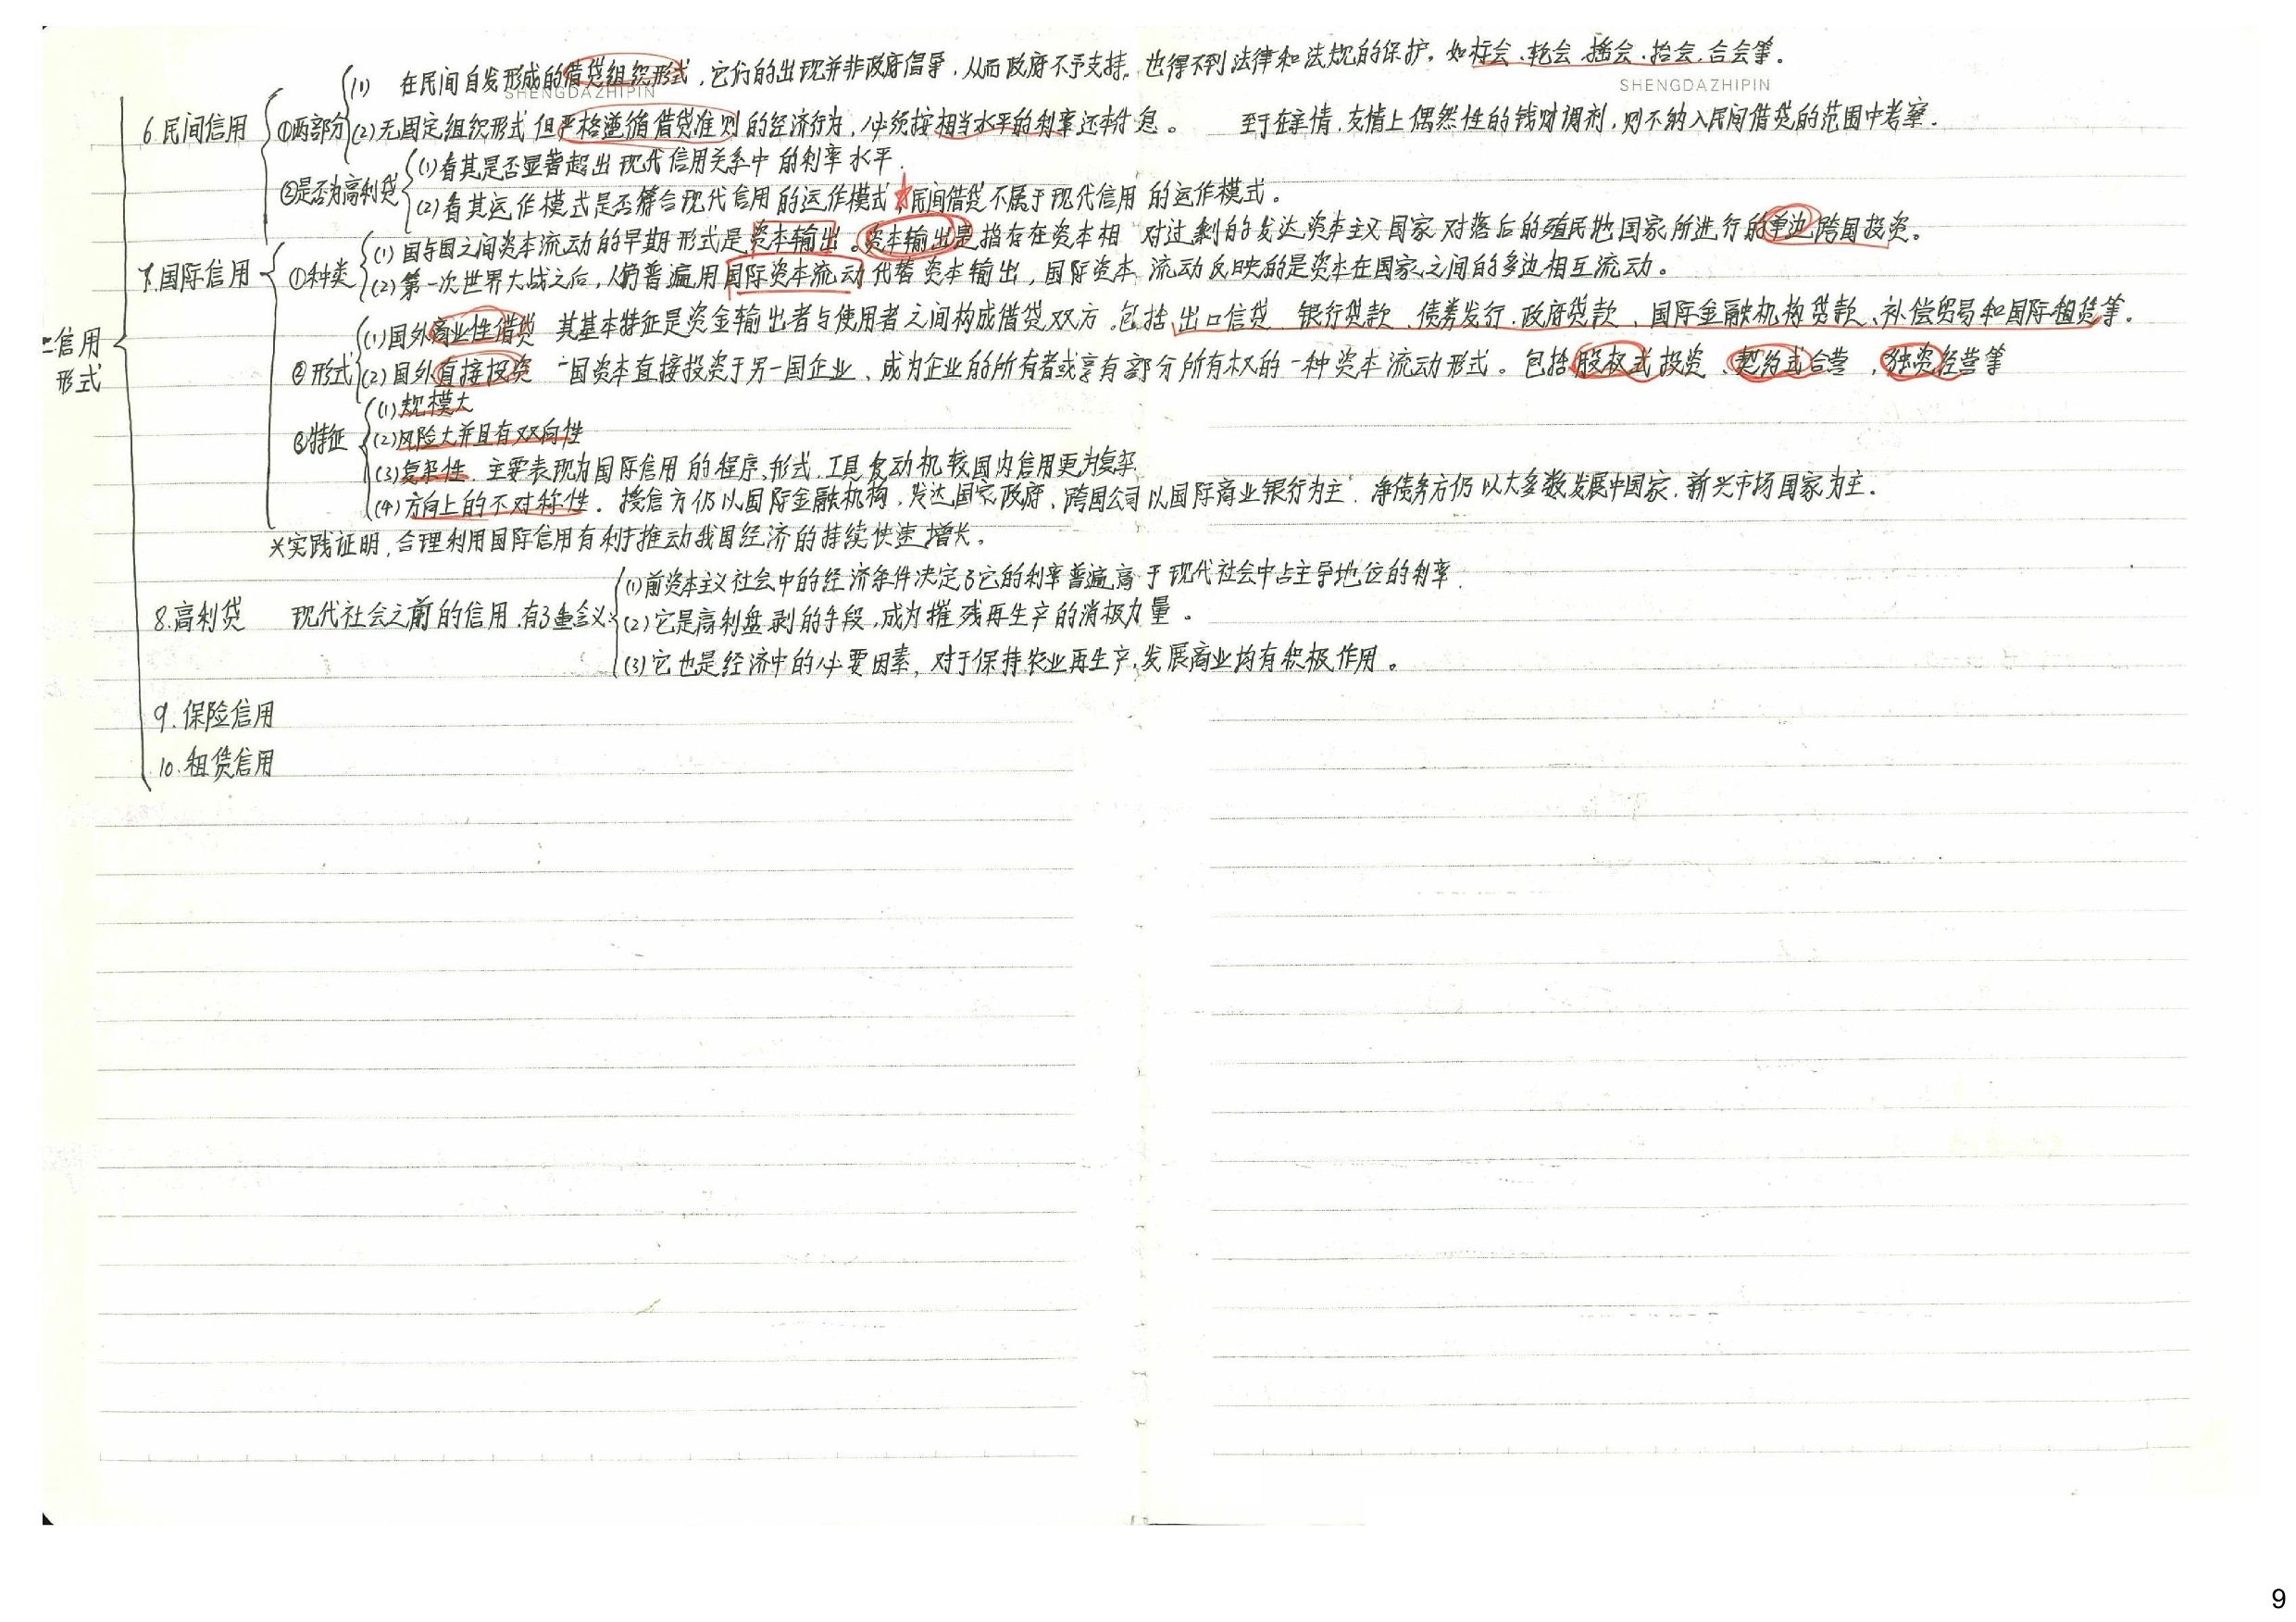 (1) 在民间自发形成的借贷组织形式，它们的出现并非政府倡导，从而政府不予支持，也得不到法律和法规的保护。如标会、轮会、摇会、抬会、合会等。
SHENGDAZHIPIN SHENGDAZHIPIN
6.民间信用 ①两部分 (2)无固定组织形式但严格遵循借贷准则的经济行为，必须按相当水平的利率还本付息。 至于在亲情、友情上偶然性的钱财调剂，则不纳入民间借贷的范围中考察.
②是否为高利贷 (1)看其是否显著超出现代信用关系中的利率水平.
(2)看其运作模式是否符合现代信用的运作模式 民间借贷不属于现代信用的运作模式。
7.国际信用 ①种类 (1)国与国之间资本流动的早期形式是资本输出。资本输出是指存在资本相对过剩的发达资本主义国家对落后的殖民地国家所进行的单边跨国投资。
(2)第一次世界大战之后，人们普遍用国际资本流动代替资本输出，国际资本流动反映的是资本在国家之间的多边相互流动。
二信用形式
②形式 (1)国外商业性借贷 其基本特征是资金输出者与使用者之间构成借贷双方.包括出口信贷、银行贷款、债券发行、政府贷款、国际金融机构贷款、补偿贸易和国际租赁等.
(2)国外直接投资 一国资本直接投资于另一国企业、成为企业的所有者或享有部分所有权的一种资本流动形式。包括股权式投资、契约式合营，独资经营等
③特征 (1)规模大
(2)风险大并且有双向性
(3)复杂性.主要表现为国际信用的程序、形式、工具及动机较国内信用更为复杂.
(4)方向上的不对称性.授信方仍以国际金融机构、发达国家政府、跨国公司以国际商业银行为主.净债务方仍以大多数发展中国家、新兴市场国家为主.
*实践证明,合理利用国际信用有利于推动我国经济的持续快速增长。
8.高利贷 现代社会之前的信用.有3重含义: (1)前资本主义社会中的经济条件决定了它的利率普遍高于现代社会中占主导地位的利率.
(2)它是高利盘剥的手段,成为摧残再生产的消极力量。
(3)它也是经济中的必要因素，对于保持农业再生产,发展商业均有积极作用。
9.保险信用
10.租赁信用
9